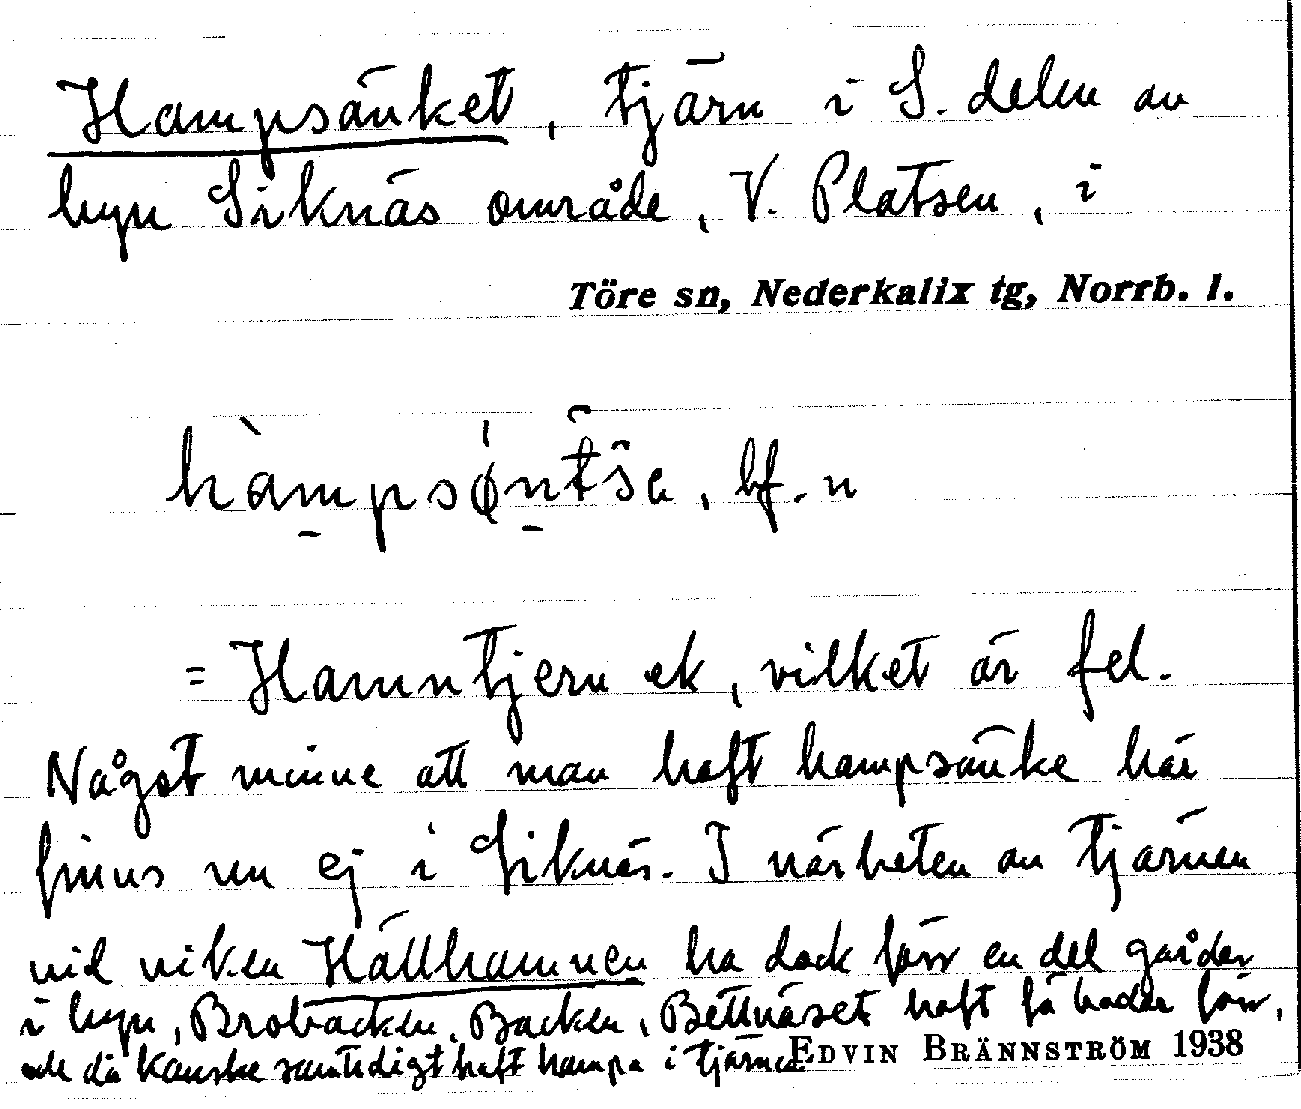 Hampsänket, tjärn i S. delen av
byn Siknäs område, V. Platsen, i
Töre sn, Nederkalix tg, Norrb. l.
hàmpsǿntša, bf. n
= Hamntjern ek, vilket är fel.
Något minne att man haft hampsänke här
finns nu ej i Siknäs. I närheten av tjärnen
vid viken Hällhamnen ha dock förr en del gårdar
i byn, Brobacken, Backen, Bettnäset haft fäbodar förr,
och då kanske samtidigt haft hampa i tjärnen
EDVIN BRÄNNSTRÖM 1938